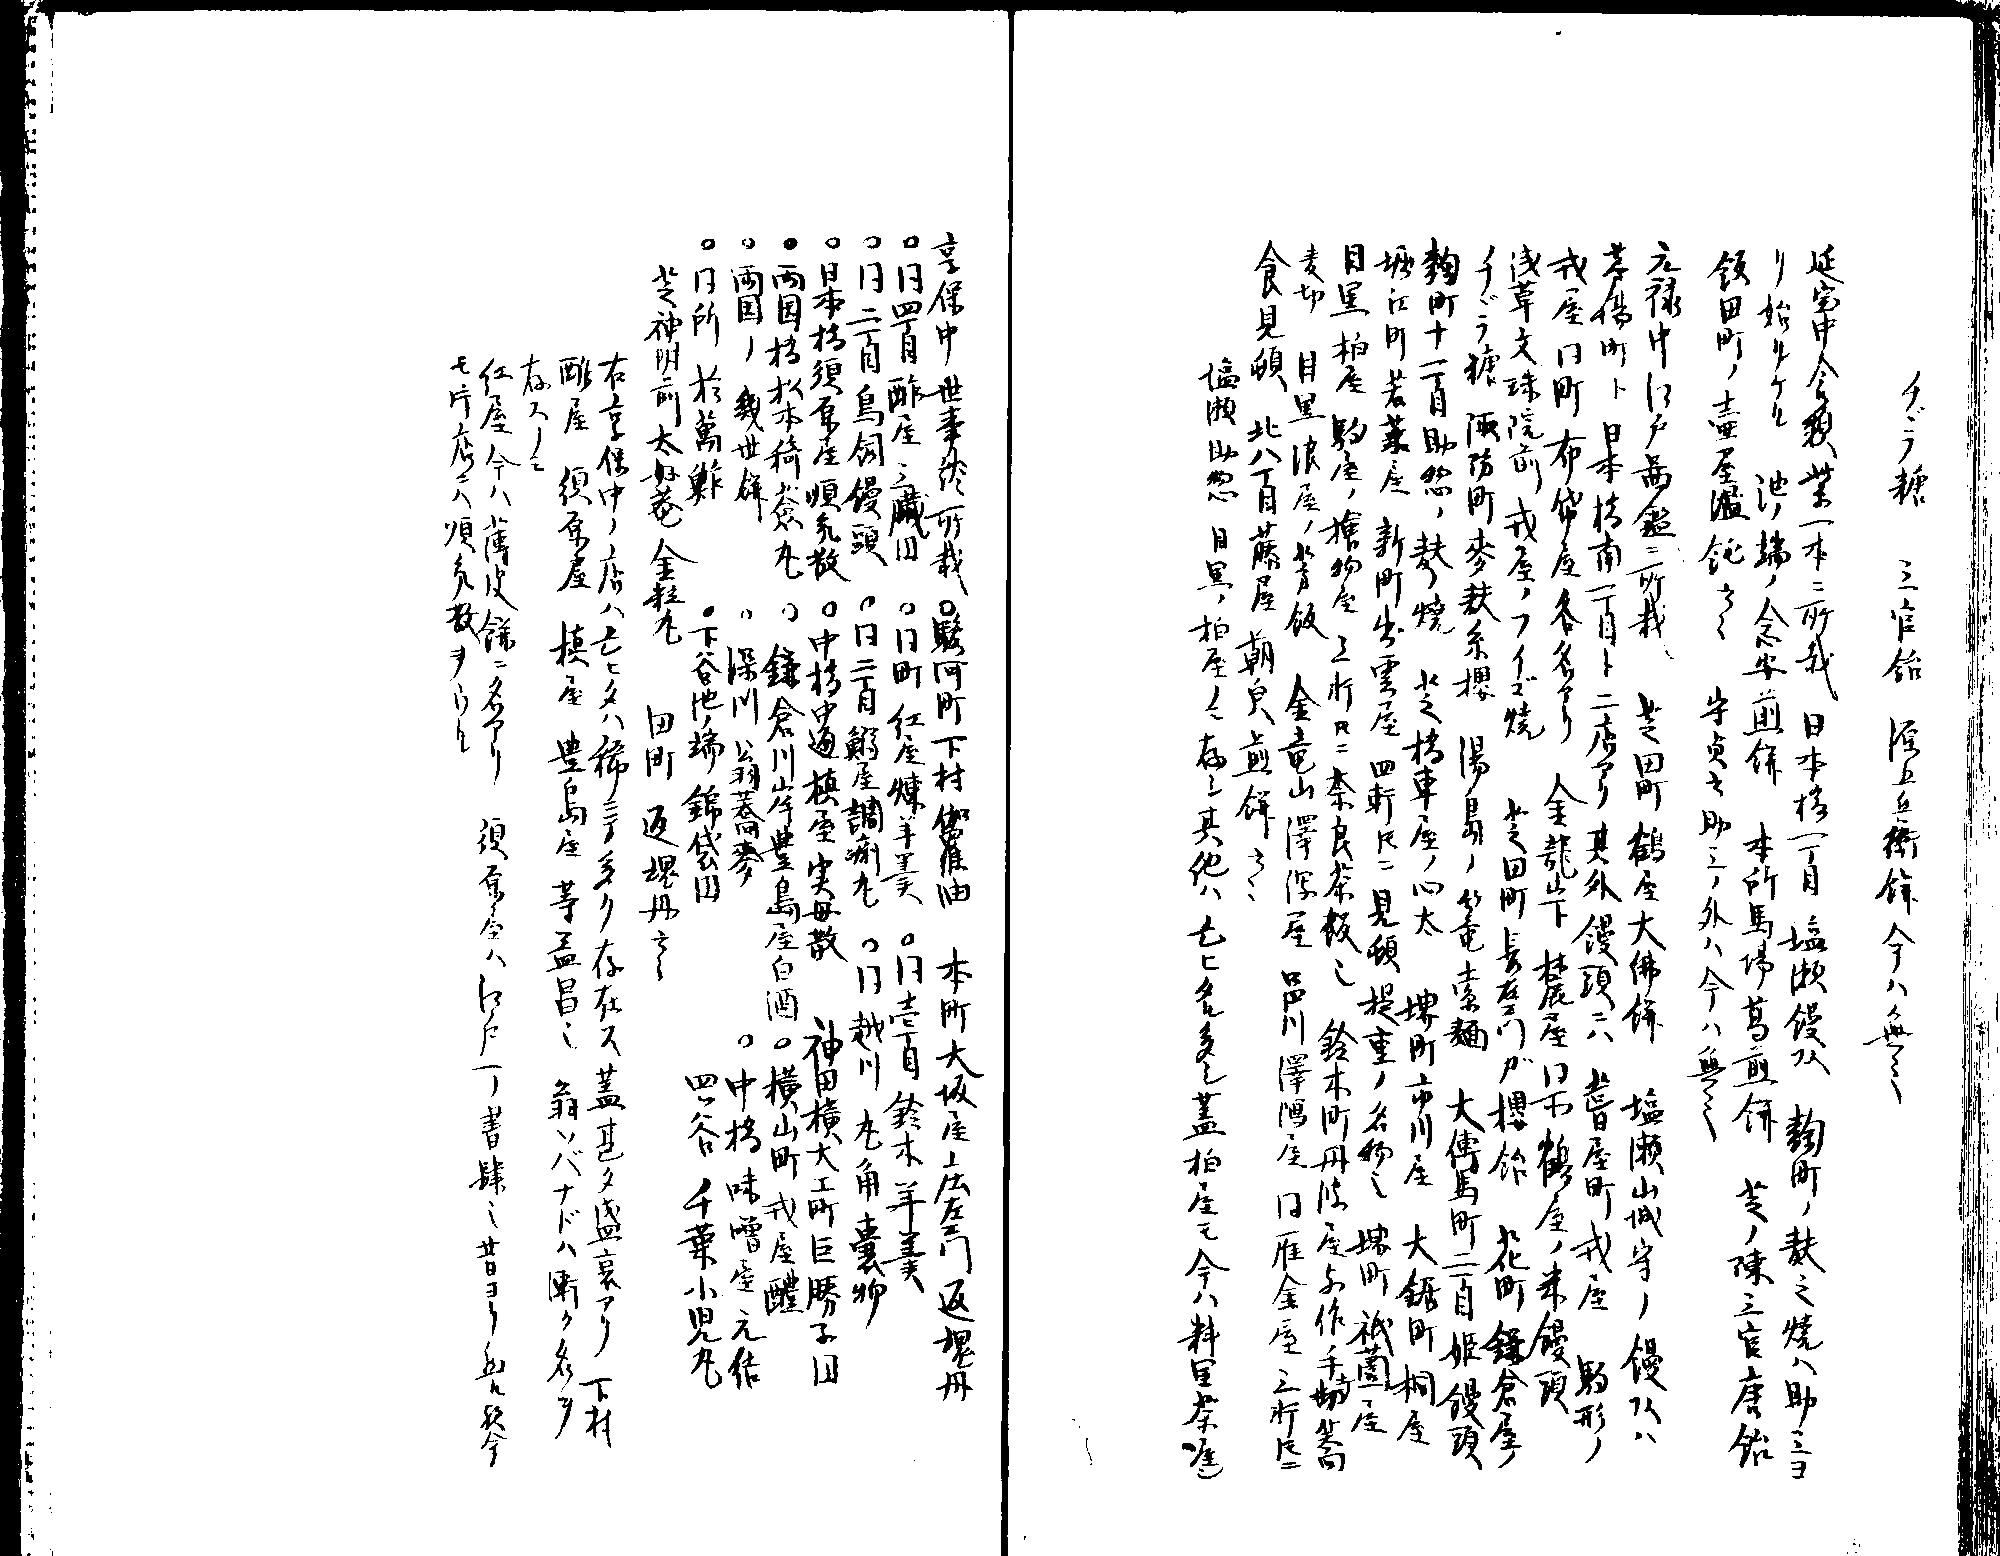 チゞラ糖 三官飴 源五兵衛餅 今ハ無之
延宝中食類葉一本ニ所載 日本橋一丁目塩瀬饅頭 麹町ノ麸之焼ハ助三ヨ
リ始リケル 池ノ端ノ念安煎餅 本所馬場葛煎餅 芝ノ陳三官唐飴
飯田町ノ壺屋温飩云々 守貞云助三ノ外ハ今ハ無之
元禄中江戸惣鑑ニ所載 芝田町鶴屋大佛餅 塩瀬山城守ノ饅頭ハ
茅場町ト日本橋南一丁目ト二店アリ 其外饅頭ニハ 葺屋町戎屋 駒形ノ
戎屋 同町布袋屋各名アリ 金龍山下麓屋 同下鶴屋ノ米饅頭
浅草文珠院前戎屋ノフイゴ焼 芝田町長左衛門ガ櫻飴 花町鎌倉屋ノ
チゞラ糖 諏訪町麥麸糸櫻 湯島ノ笹竜素麺 大傳馬町二丁目姫饅頭
麹町十一丁目助惣ノ麸ノ焼 芝橋車屋ノ心太 堺町市川屋 大鋸町桐屋
堀江町若菜屋 新町出雲屋 四軒トモニ見頓 提重ノ名物也 堺町祇薗屋
目黒柏屋 駒屋ノ檜物屋 三所トモニ奈良茶飯也 鈴木町丹波屋与作手打蕎
麦切 目黒浪屋ノ菜飯 金竜山澤潟屋 品川澤潟屋 同雁金屋三所トモニ
食見頓 北八丁目藤屋朝皃煎餅云々
塩瀬助惣 目黒ノ柏屋今ニ存シ其他ハ亡ヒ名多シ蓋柏屋モ今ハ料理茶漬也
享保中世事談ニ所載 ○駿河町下村伽羅油 本町大坂屋上広左エ門返魂丹
○同四丁目酢屋三臓円 ○同町紅屋煉羊羹 ○同壱丁目鈴木羊羹
○同二丁目鳥飼饅頭 ○同二丁目鰯屋調痢丸 ○同越川丸角嚢物
○日本橋須原屋順気散 ○中橋中通槙屋実母散 神田横大工町巨勝子円
●両国橋松本倚蘞丸 ○鎌倉川岸豊島屋白酒 ○横山町戎屋醴
○両国ノ幾世餅 ○深川翁蕎麥 ○中橋味噌屋元結
○同所於萬鮓 ●下谷池ノ端錦袋円 四谷千葉小児丸
芝神明前太好菴金粒丸 田町返魂丹云々
右享保中ノ店ハ亡ヒタハ稀ニテ多ク存在ス蓋甚タ盛衰アリ 下村
酢屋 須原屋 槙屋 豊島屋等益昌也 翁ソバナドハ漸ク名ヲ
存スノミ
紅屋今ハ薄皮餅ニ名アリ 須原今ハ江戸一ノ書肆也昔ヨリ無比欤今
モ片店ニハ順気散ヲウル